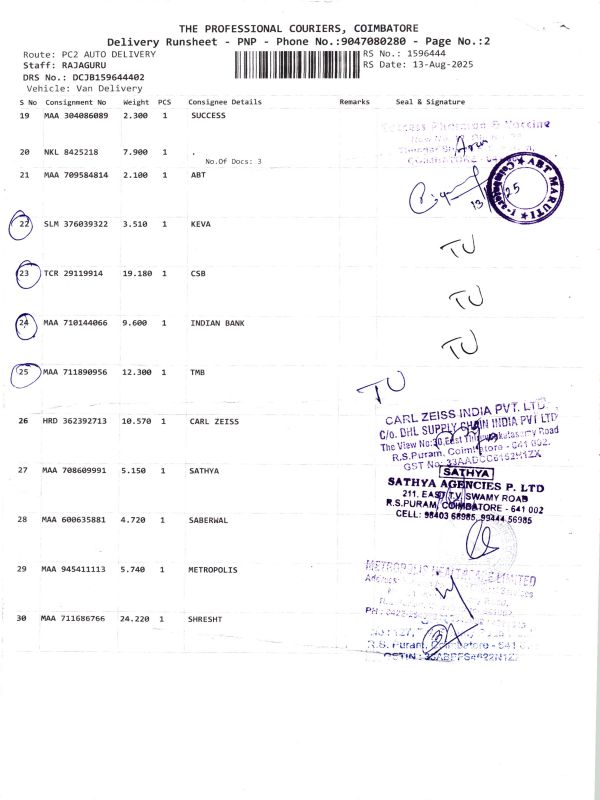 THE PROFESSIONAL COURIERS, COIMBATORE
Delivery Runsheet - PNP - Phone No.:9047080280 - Page No.:2
Route: PC2 AUTO DELIVERY
RS No.: 1596444
Staff: RAJAGURU
RS Date: 13-Aug-2025
DRS No.: DCJB159644402
Vehicle: Van Delivery
S No Consignment No Weight PCS Consignee Details Remarks Seal & Signature
19 MAA 304086089 2.300 1 SUCCESS
20 NKL 8425218 7.900 1 .
No.Of Docs: 3
21 MAA 709584814 2.100 1 ABT
ABT MARUTI
13
25
22 SLM 376039322 3.510 1 KEVA
TU
23 TCR 29119914 19.180 1 CSB
TU
24 MAA 710144066 9.600 1 INDIAN BANK
TU
25 MAA 711890956 12.300 1 TMB
TU
26 HRD 362392713 10.570 1 CARL ZEISS
CARL ZEISS INDIA PVT. LTD.
C/o. DHL SUPPLY CHAIN INDIA PVT LTD
The View No:30,East
Road
R.S.Puram, Coimbatore - 641 002.
GST No: 33AADCC6152H1ZX
27 MAA 708609991 5.150 1 SATHYA
SATHYA
SATHYA AGENCIES P. LTD
211, EAST T.V. SWAMY ROAD
R.S.PURAM, COIMBATORE - 641 002
CELL: 98403 68985, 99444 56985
28 MAA 600635881 4.720 1 SABERWAL
29 MAA 945411113 5.740 1 METROPOLIS
METROPOLIS HEALTHCARE LIMITED
Address:
30 MAA 711686766 24.220 1 SHRESHT
R.S. Puram, Coimbatore - 641